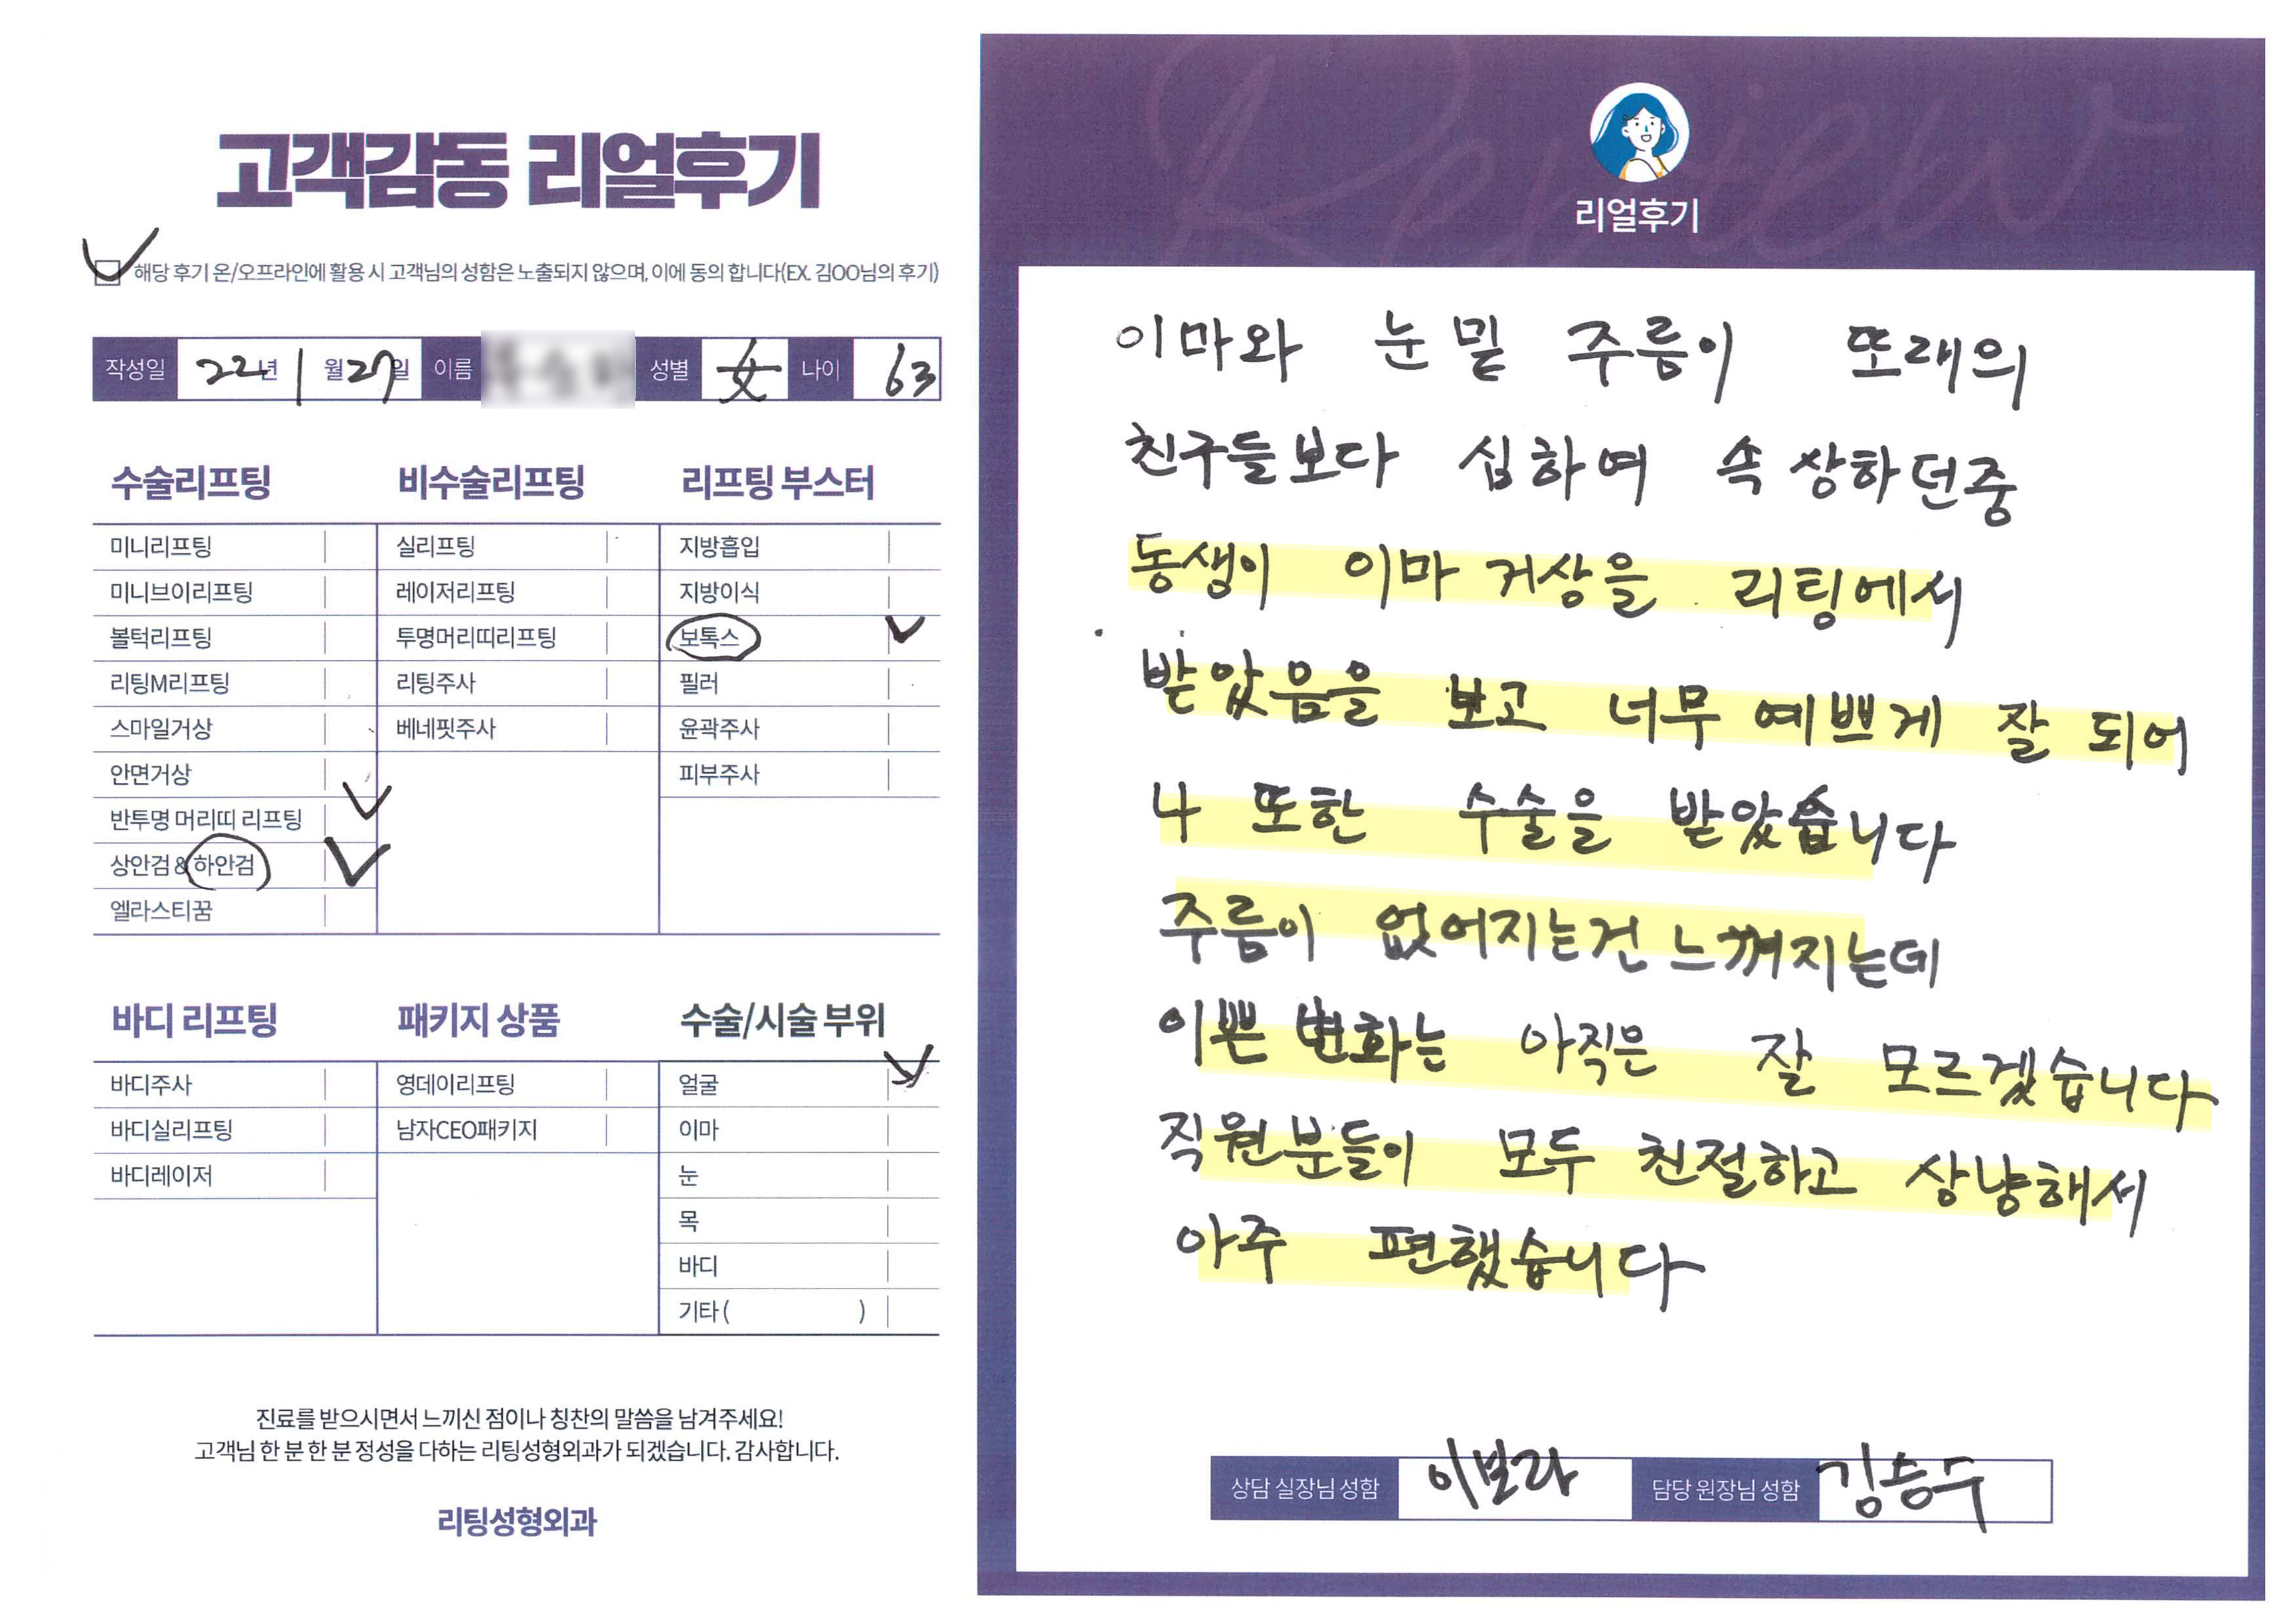 고객감동 리얼후기
해당 후기 온/오프라인에 활용 시 고객님의 성함은 노출되지 않으며, 이에 동의 합니다(EX. 김OO님의 후기)
작성일 22년 1월 27일 이름 성별 女 나이 63
수술리프팅
미니리프팅
미니브이리프팅
볼턱리프팅
리팅M리프팅
스마일거상
안면거상
반투명 머리띠 리프팅
상안검 & 하안검
엘라스티꿈
비수술리프팅
실리프팅
레이저리프팅
투명머리띠리프팅
리팅주사
베네핏주사
리프팅 부스터
지방흡입
지방이식
보톡스
필러
윤곽주사
피부주사
바디 리프팅
바디주사
바디실리프팅
바디레이저
패키지 상품
영데이리프팅
남자CEO패키지
수술/시술 부위
얼굴
이마
눈
목
바디
기타 ( )
진료를 받으시면서 느끼신 점이나 칭찬의 말씀을 남겨주세요!
고객님 한 분 한 분 정성을 다하는 리팅성형외과가 되겠습니다. 감사합니다.
리팅성형외과
Review
리얼후기
이마와 눈밑 주름이 또래의
친구들보다 심하여 속상하던중
동생이 이마 거상을 리팅에서
받았음을 보고 너무 예쁘게 잘 되어
나 또한 수술을 받았습니다
주름이 없어지는건 느껴지는데
이쁜 변화는 아직은 잘 모르겠습니다
직원분들이 모두 친절하고 상냥해서
아주 편했습니다
상담 실장님 성함 이보라 담당 원장님 성함 김승수